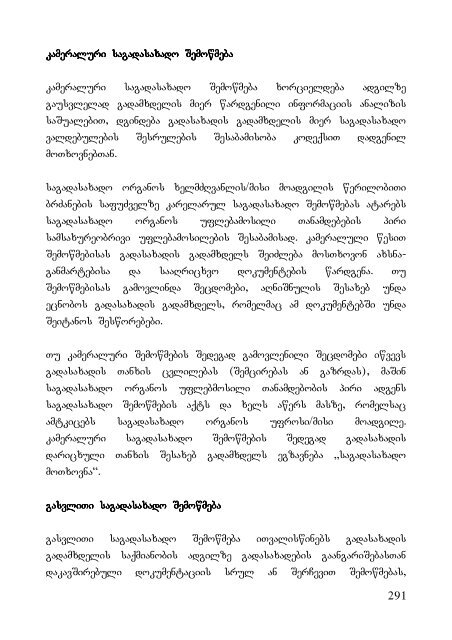 კამერალური საგადასახადო შემოწმება
კამერალური საგადასახადო შემოწმება ხორციელდება ადგილზე
გაუსვლელად გადამხდელის მიერ წარდგენილი ინფორმაციის ანალიზის
საშუალებით, დგინდება გადასახადის გადამხდელის მიერ საგადასახადო
ვალდებულების შესრულების შესაბამისობა კოდექსით დადგენილ
მოთხოვნებთან.
საგადასახადო ორგანოს ხელმძღვანლის/მისი მოადგილის წერილობითი
ბრძანების საფუძველზე კარელარულ საგადასახადო შემოწმებას ატარებს
საგადასახადო ორგანოს უფლებამოსილი თანამდებების პირი
სამსახურეობრივი უფლებამოსილების შესაბამისად. კამერალული წესით
შემოწმებისას გადასახადის გადამხდელს შეიძლება მოსთხოვონ ახსნა-
განმარტებისა და სააღრიცხვო დოკუმენტების წარდგენა. თუ
შემოწმებისას გამოვლინდა შეცდომები, აღნიშნულის შესახებ უნდა
ეცნობოს გადასახადის გადამხდელს, რომელმაც ამ დოკუმენტებში უნდა
შეიტანოს შესწორებები.
თუ კამერალური შემოწმების შედეგად გამოვლენილი შეცდომები იწვევს
გადასახადის თანხის ცვლილებას (შემცირებას ან გაზრდას), მაშინ
საგადასახადო ორგანოს უფლებმოსილი თანამდებობის პირი ადგენს
საგადასახადო შემოწმების აქტს და ხელს აწერს მასზე, რომელსაც
ამტკიცებს საგადასახადო ორგანოს უფროსი/მისი მოადგილე.
კამერალური საგადასახადო შემოწმების შედეგად გადასახადის
დარიცხული თანხის შესახებ გადამხდელს ეგზავნება „საგადასახადო
მოთხოვნა“.
გასვლითი საგადასახადო შემოწმება
გასვლითი საგადასახადო შემოწმება ითვალისწინებს გადასახადის
გადამხდელის საქმიანობის ადგილზე გადასახადების გაანგარიშებასთან
დაკავშირებული დოკუმენტაციის სრულ ან შერჩევით შემოწმებას,
291